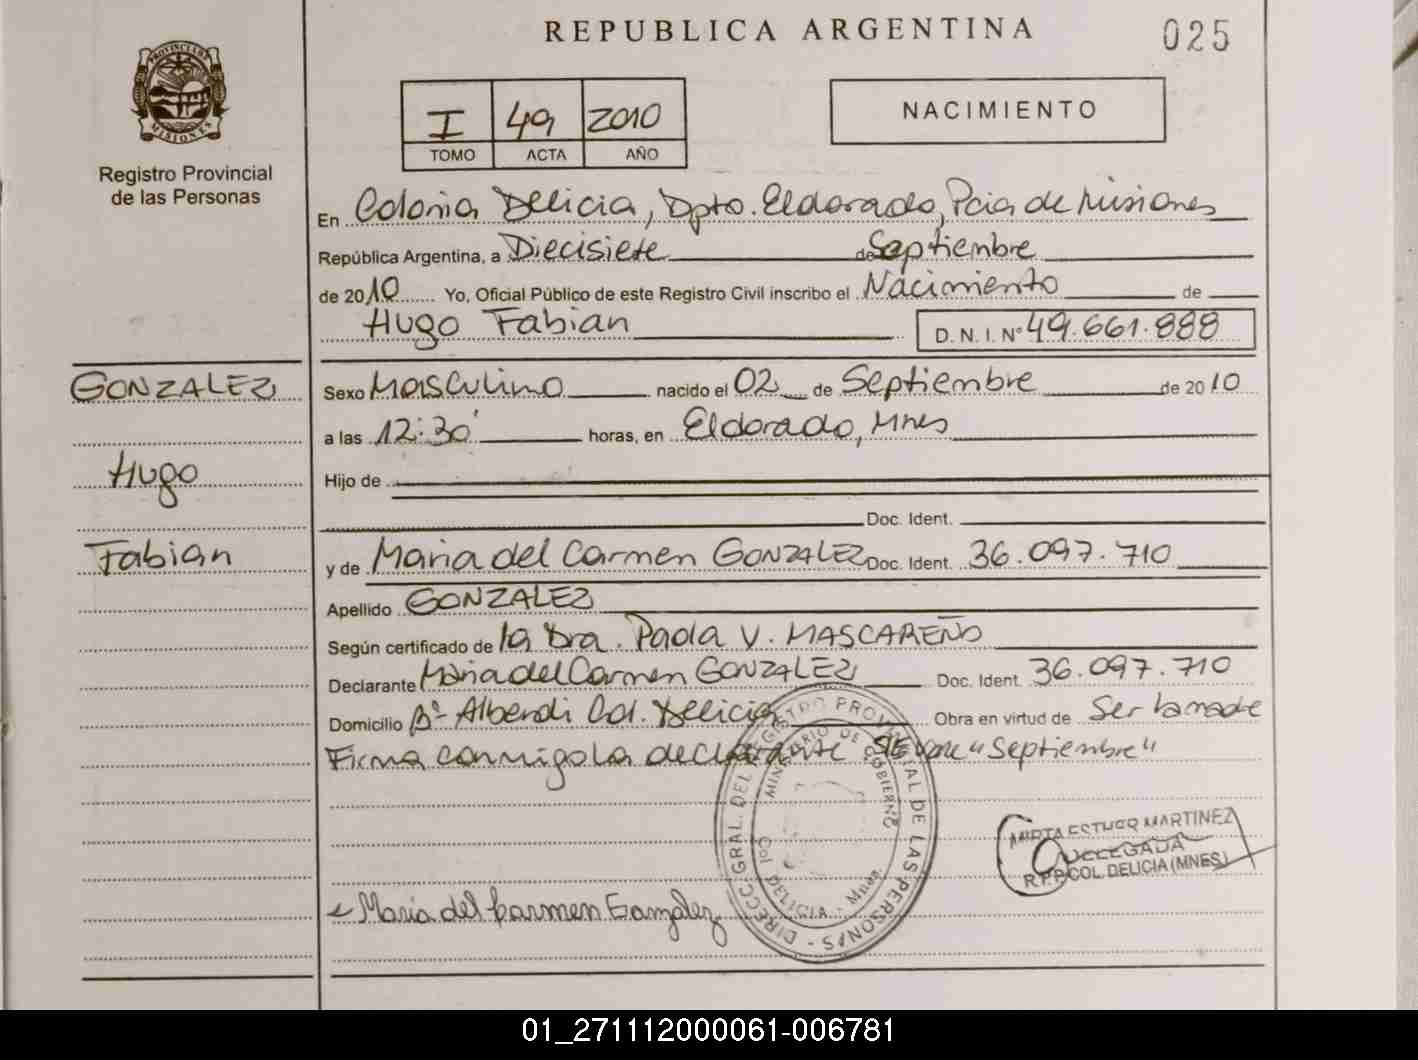 REPUBLICA ARGENTINA
025
PROVINCIA DE MISIONES
Registro Provincial
de las Personas
I 49 2010
TOMO ACTA AÑO
NACIMIENTO
En Colonia Delicia, Dpto. Eldorado, Pcia de Misiones
República Argentina, a Diecisiete de Septiembre
de 2010 Yo, Oficial Público de este Registro Civil inscribo el Nacimiento de
Hugo Fabian D. N. I. Nº 49.661.888
GONZALEZ
Hugo
Fabian
Sexo Masculino nacido el 02 de Septiembre de 2010
a las 12:30' horas, en Eldorado, Mnes
Hijo de
Doc. Ident.
y de Maria del Carmen GONZALEZ Doc. Ident. 36.097.710
Apellido GONZALEZ
Según certificado de la Dra. Paola V. MASCAREÑO
Declarante Maria del Carmen GONZALEZ Doc. Ident. 36.097.710
Domicilio Bº Alberdi Col. Delicia Obra en virtud de Ser la madre
Firma conmigo la declarante "Septiembre"
DIRECC GRAL. DEL REGISTRO PROVINCIAL DE LAS PERSONAS
MINISTERIO DE GOBIERNO
Col DELICIA - Mnes.
MIRTA ESTHER MARTINEZ
DELEGADA
R.P.P COL. DELICIA (MNES)
Maria del Carmen Gonzalez
01_271112000061-006781